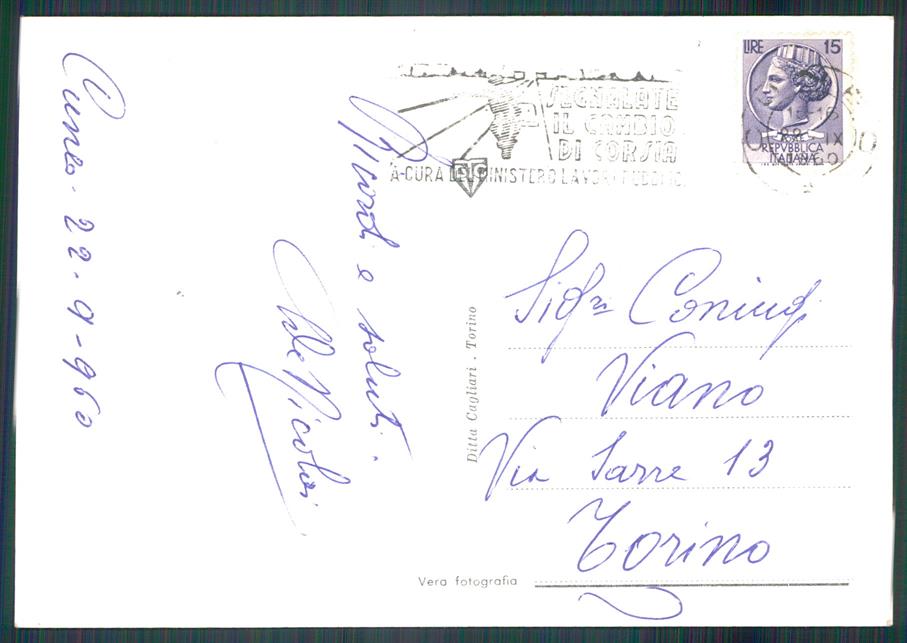 Cuneo - 22-9-960
Ricordi e saluti.
De Nicolai
SEGNALATE
IL CAMBIO
DI CORSIA
A CURA DEL MINISTERO LAVORI PUBBLICI
LIRE 15
REPVBBLICA
ITALIANA
Sigri Coniugi
Viano
Via Sarre 13
Torino
Ditta Cagliari - Torino
Vera fotografia